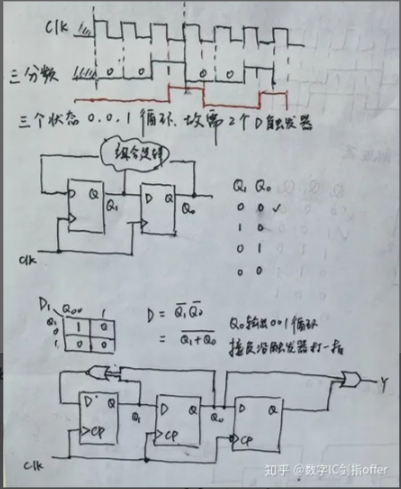 Clk
三分频 0 0 0 0
三个状态 0.0.1 循环. 故需 2个 D触发器
组合逻辑
D Q Q₁ D Q Q₀
Clk
Q₁ Q₀
0 0 ✓
1 0
0 1
0 0
D₁ Q₀ 0 1
Q₁
0 1 0
1 0 0
D = Q̅₁Q̅₀
= \overline{Q₁+Q₀}
Q₀输出001循环
接负沿触发器打一拍
D Q Q₁ D Q Q₀ D Q Y
CP CP CP
Clk
知乎 @数字IC剑指offer